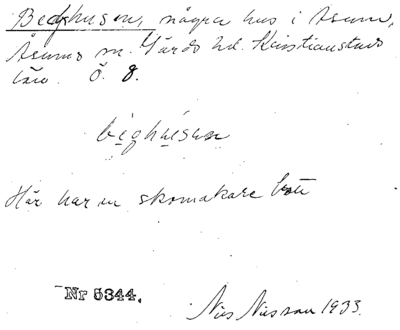 Beckhusen, några hus i Åsum,
Åsums sn. Gärds hd. Kristianstads
län. Ö. 8.
beghúsen
Här har en skomakare bott
Nr 5344.
Nils Nilsson 1933.